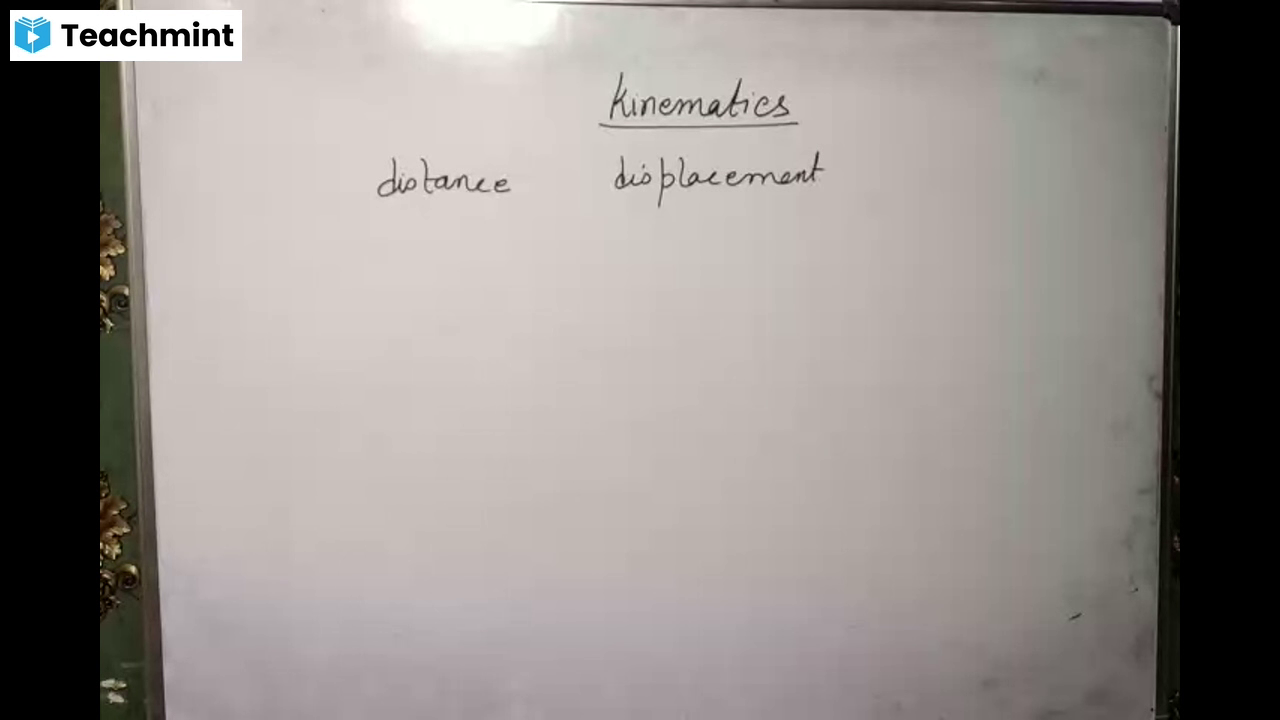 Teachmint
Kinematics
distance displacement